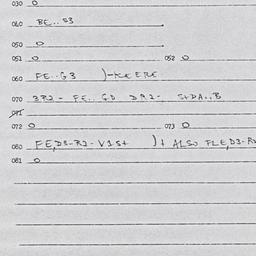 030 0
040 BE..S3
050 0
051 0 052 0
060 FE..G3 )-
070 3R2- FE.. GD DA2- S+DA..B
071
072 0 073 0
080 FE,D3-R2-V1S+ )+ ALSO FLE,D3-R
081 0